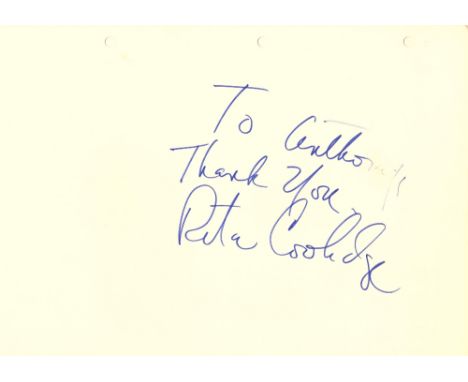 To Anthony
Thank You,
Rita Coolidge